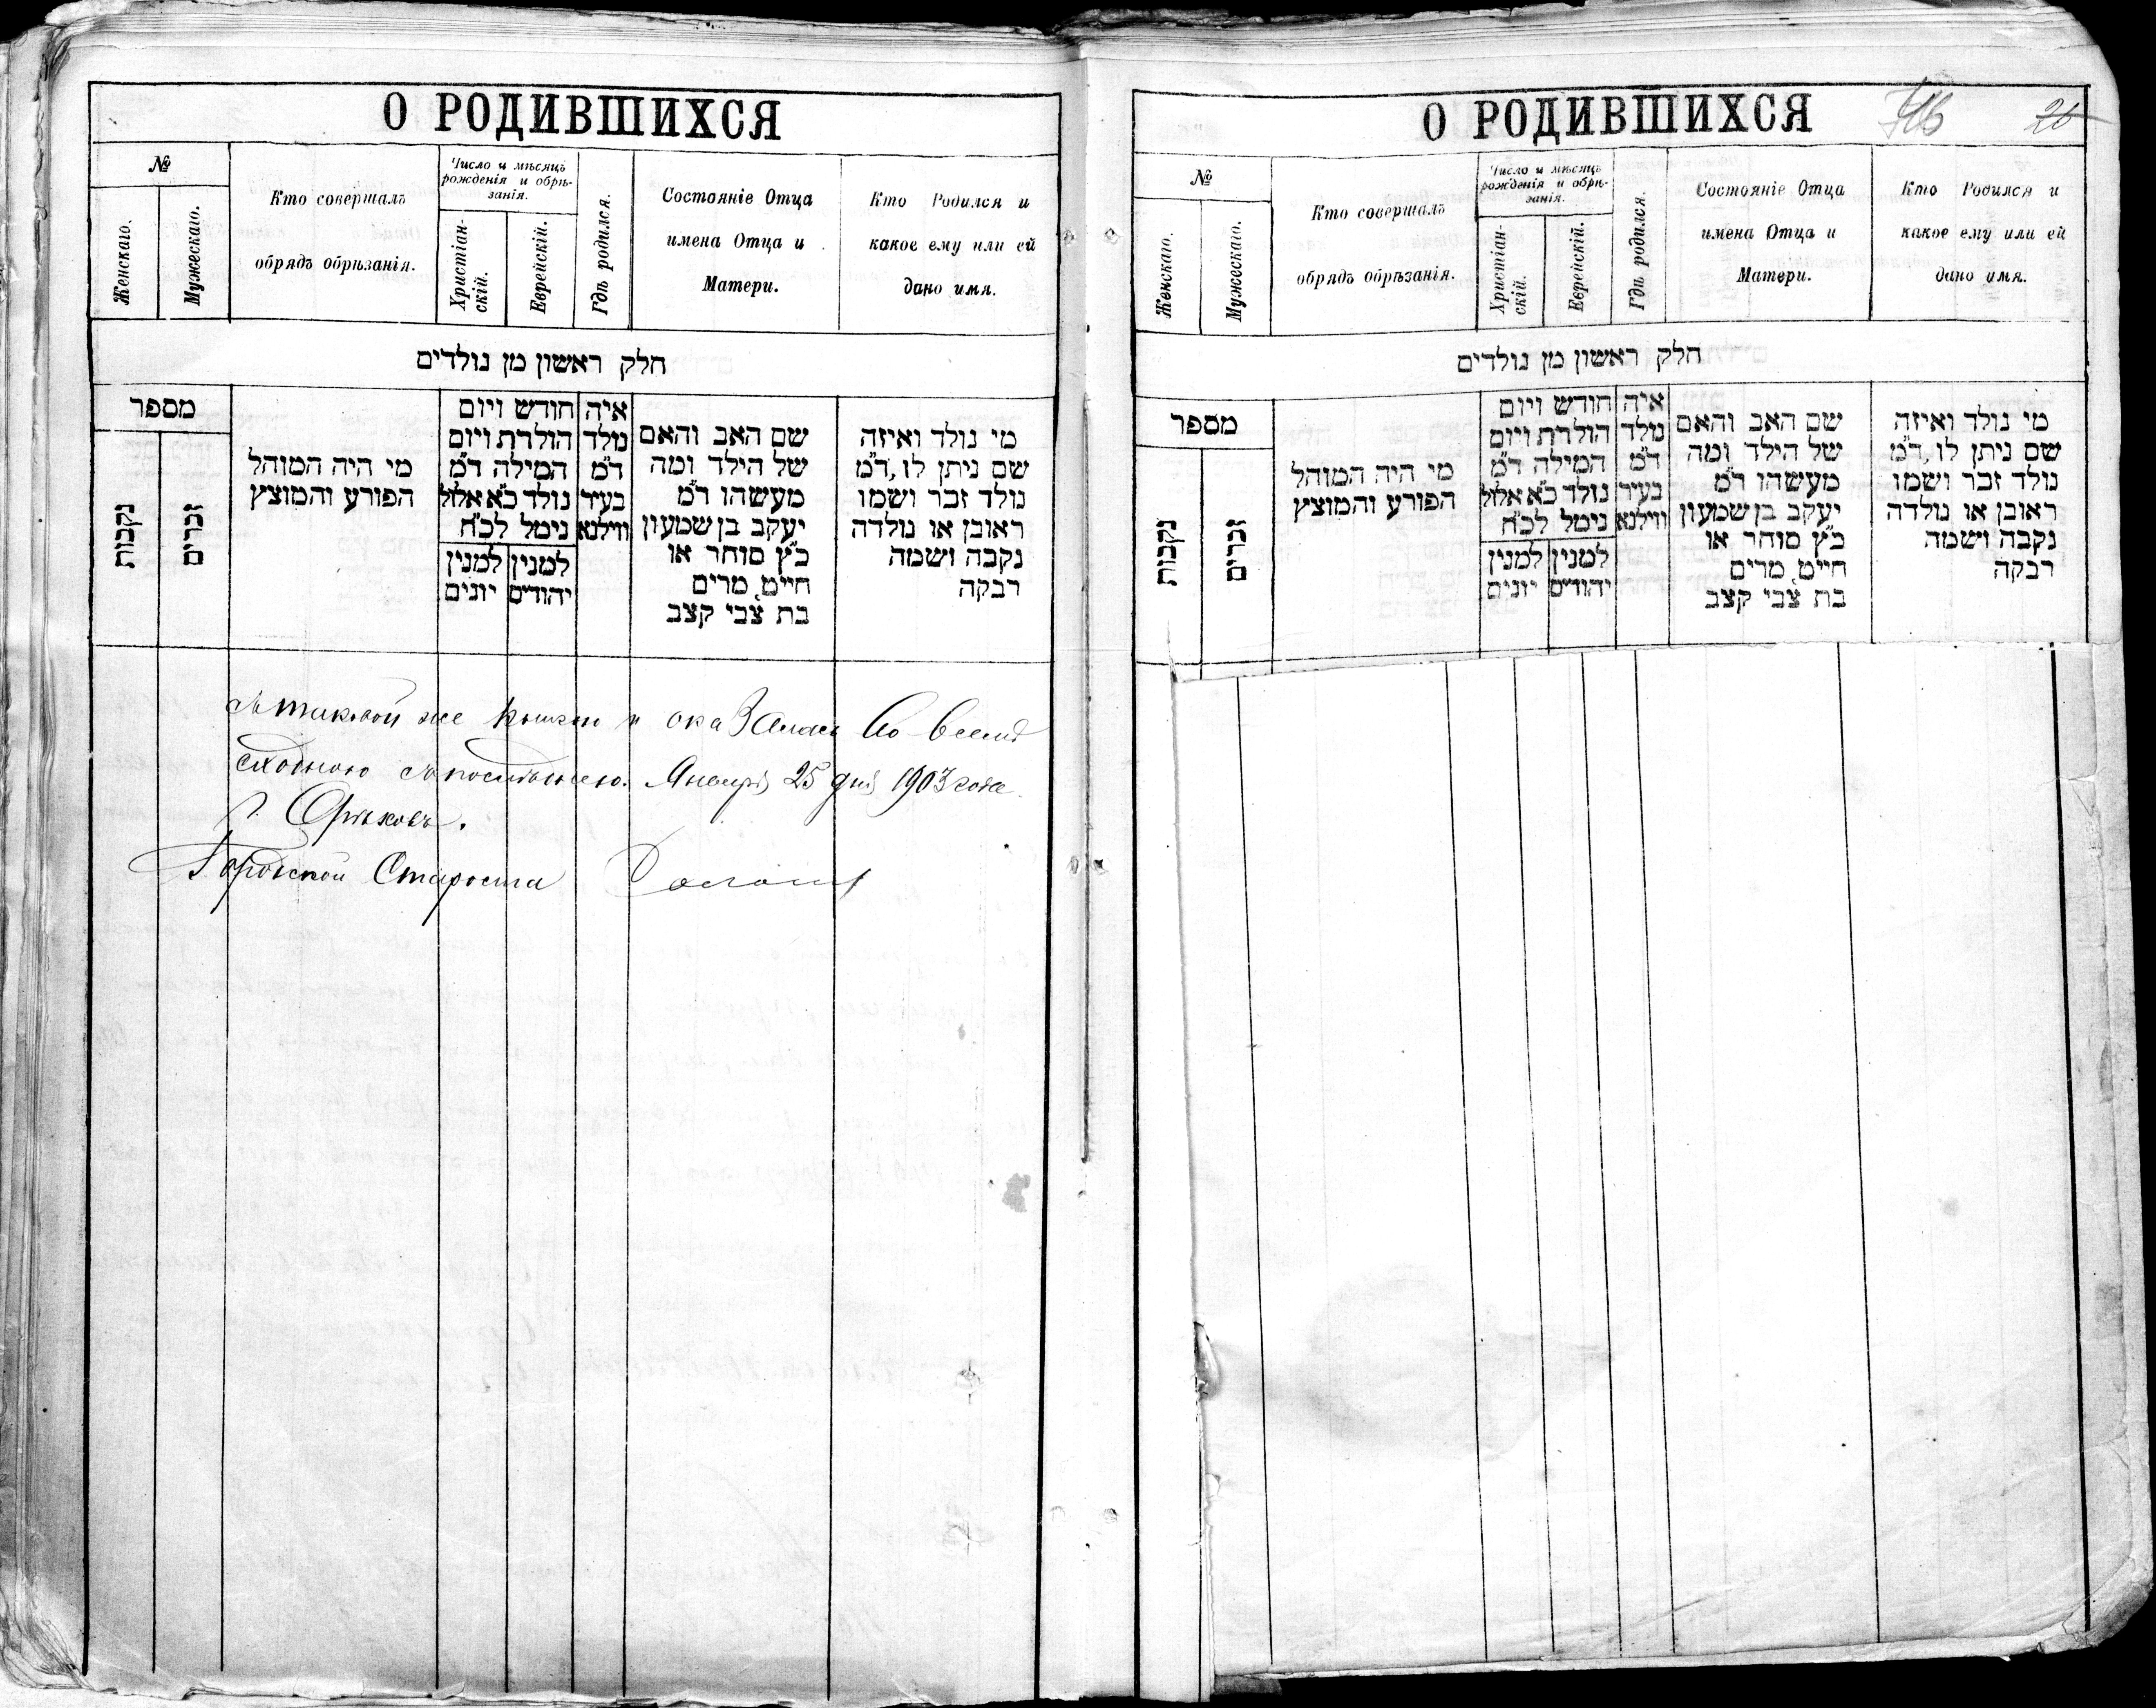 О РОДИВШИХСЯ
№
Женскаго.
Мужескаго.
Кто совершалъ
обрядъ обрѣзанія.
Число и мѣсяцъ
рожденія и обрѣ-
занія.
Христіан-
скій.
Еврейскій.
Гдѣ родился.
Состояніе Отца
имена Отца и
Матери.
Кто Родился и
какое ему или ей
дано имя.
חלק ראשון מן נולדים
מספר
נקבות
זכרים
מי היה המוהל
הפורע והמוצץ
חודש ויום
הולדת ויום
המילה ד"מ
נולד כ"א אלול
נימל לכ"ח
למנין יהודים
למנין יונים
איה
נולד
ד"מ
בעיר
ווילנא
שם האב והאם
של הילד ומה
מעשהו ד"מ
יעקב בן שמעון
כ"ץ סוחר או
חייט, מרים
בת צבי קצב
מי נולד ואיזה
שם ניתן לו, ד"מ
נולד זכר ושמו
ראובן או נולדה
נקבה ושמה
רבקה
съ таковой же книгою и оказалась во всемъ
сходною съ послѣднею. Января 25 дня 1903 года
г. Орѣховъ.
Городской Староста
О РОДИВШИХСЯ
26
№
Женскаго.
Мужескаго.
Кто совершалъ
обрядъ обрѣзанія.
Число и мѣсяцъ
рожденія и обрѣ-
занія.
Христіан-
скій.
Еврейскій.
Гдѣ родился.
Состояніе Отца
имена Отца и
Матери.
Кто Родился и
какое ему или ей
дано имя.
חלק ראשון מן נולדים
מספר
נקבות
זכרים
מי היה המוהל
הפורע והמוצץ
חודש ויום
הולדת ויום
המילה ד"מ
נולד כ"א אלול
נימל לכ"ח
למנין יהודים
למנין יונים
איה
נולד
ד"מ
בעיר
ווילנא
שם האב והאם
של הילד ומה
מעשהו ד"מ
יעקב בן שמעון
כ"ץ סוחר או
חייט, מרים
בת צבי קצב
מי נולד ואיזה
שם ניתן לו, ד"מ
נולד זכר ושמו
ראובן או נולדה
נקבה ושמה
רבקה